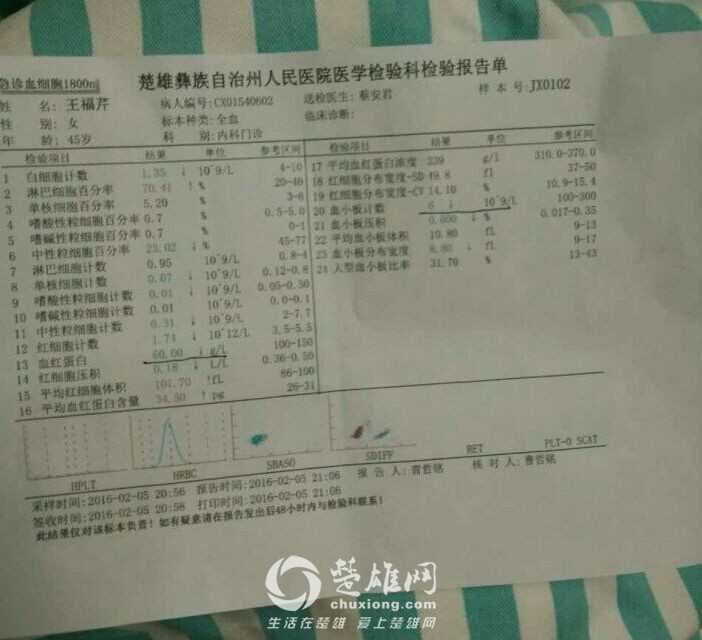 急诊血细胞1800n
楚雄彝族自治州人民医院医学检验科检验报告单
姓 名: 王福芹 病人编号:CX01540602 送检医生: 蔡安君 样 本 号:JX0102
性 别: 女 标本种类:全血 临床诊断:
年 龄: 45岁 科 别:内科门诊
检验项目 结果 单位 参考区间 检验项目 结果 单位 参考区间
1 白细胞计数 1.35 ↓ 10^9/L 4-10
2 淋巴细胞百分率 70.41 ↑ % 20-40
3 单核细胞百分率 5.20 % 3-8
4 嗜酸性粒细胞百分率 0.7 % 0.5-5.0
5 嗜碱性粒细胞百分率 0.7 % 0-1
6 中性粒细胞百分率 23.02 ↓ % 45-77
7 淋巴细胞计数 0.95 10^9/L 0.8-4
8 单核细胞计数 0.07 ↓ 10^9/L 0.12-0.8
9 嗜酸性粒细胞计数 0.01 ↓ 10^9/L 0.05-0.50
10 嗜碱性粒细胞计数 0.01 10^9/L 0.0-0.1
11 中性粒细胞计数 0.31 ↓ 10^9/L 2-7.7
12 红细胞计数 1.74 ↓ 10^12/L 3.5-5.5
13 血红蛋白 60.00 ↓ g/L 100-150
14 红细胞压积 0.18 ↓ L/L 0.36-0.50
15 平均红细胞体积 101.70 ↑fL 86-100
16 平均血红蛋白含量 34.50 ↑ pg 26-31
17 平均血红蛋白浓度 339 g/l 310.0-370.0
18 红细胞分布宽度-SD 49.8 fl 37-50
19 红细胞分布宽度-CV 14.10 % 10.9-15.4
20 血小板计数 6 ↓ 10^9/L 100-300
21 血小板压积 0.000 ↓ % 0.017-0.35
22 平均血小板体积 10.80 fL 9-13
23 血小板分布宽度 8.80 ↓ fL 9-17
24 大型血小板比率 31.70 % 13-43
HPLT HRBC SBASO SDIFF RET PLT-O SCAT
采样时间:2016-02-05 20:56 报告时间:2016-02-05 21:06 报 告 人:曹哲铭 核 对 人:曹哲铭
签收时间:2016-02-05 20:58 打印时间:2016-02-05 21:06
此结果仅对该标本负责!如有疑意请在报告发出后48小时内与检验科联系!
楚雄网
chuxiong.com
生活在楚雄 爱上楚雄网